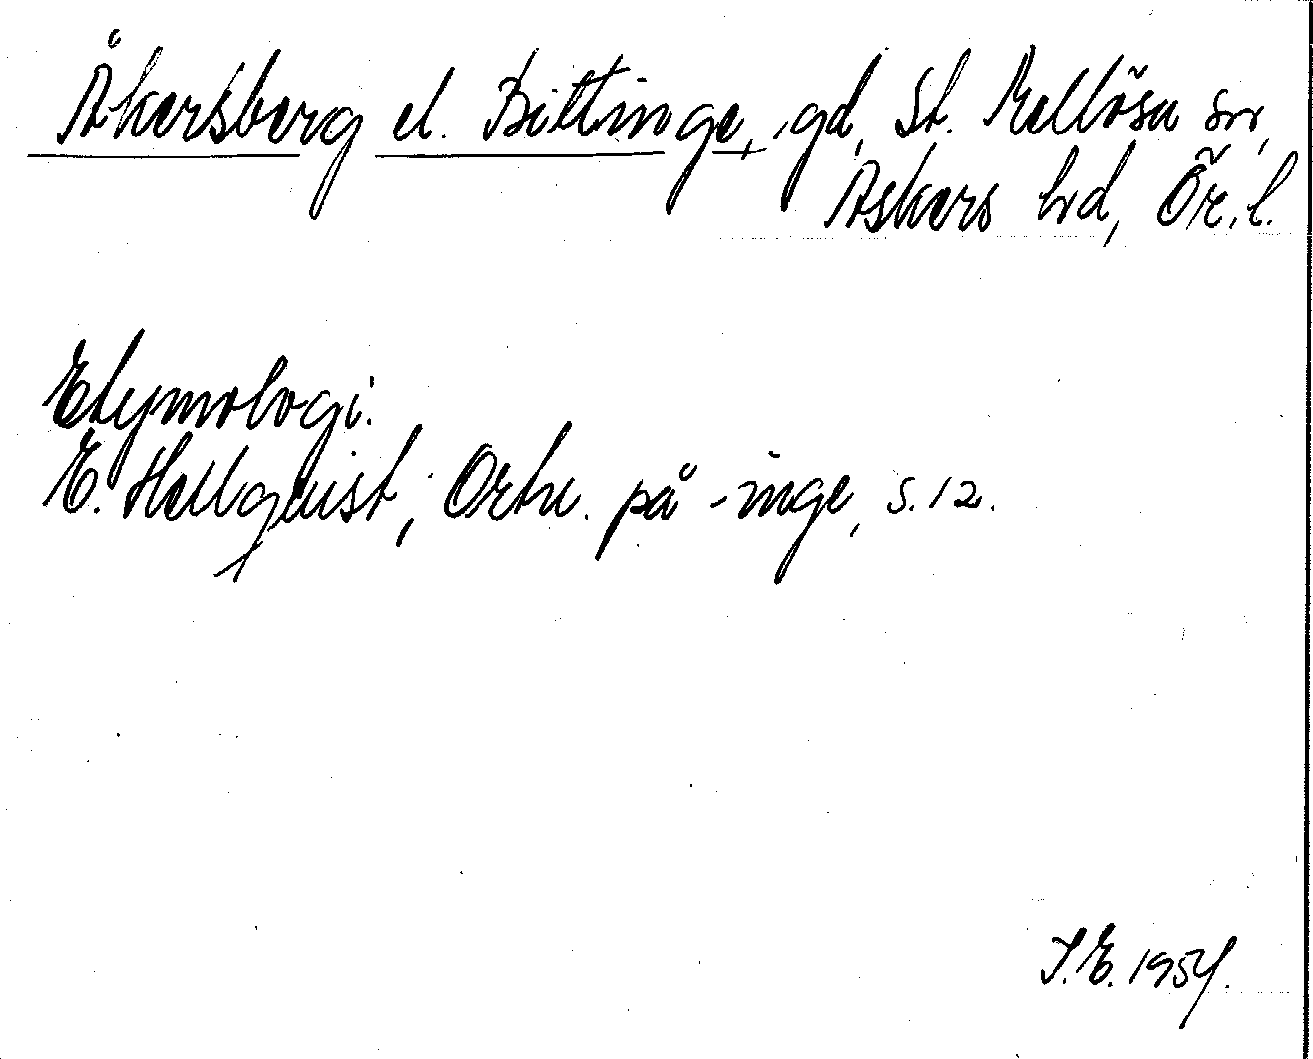 Åkersberg el. Bittinge, gd, St. Mellösa sn,
Askers hd, Ör. l.
Etymologi.
E. Hellquist, Ortn. på -inge, s. 12.
I.E. 1954.